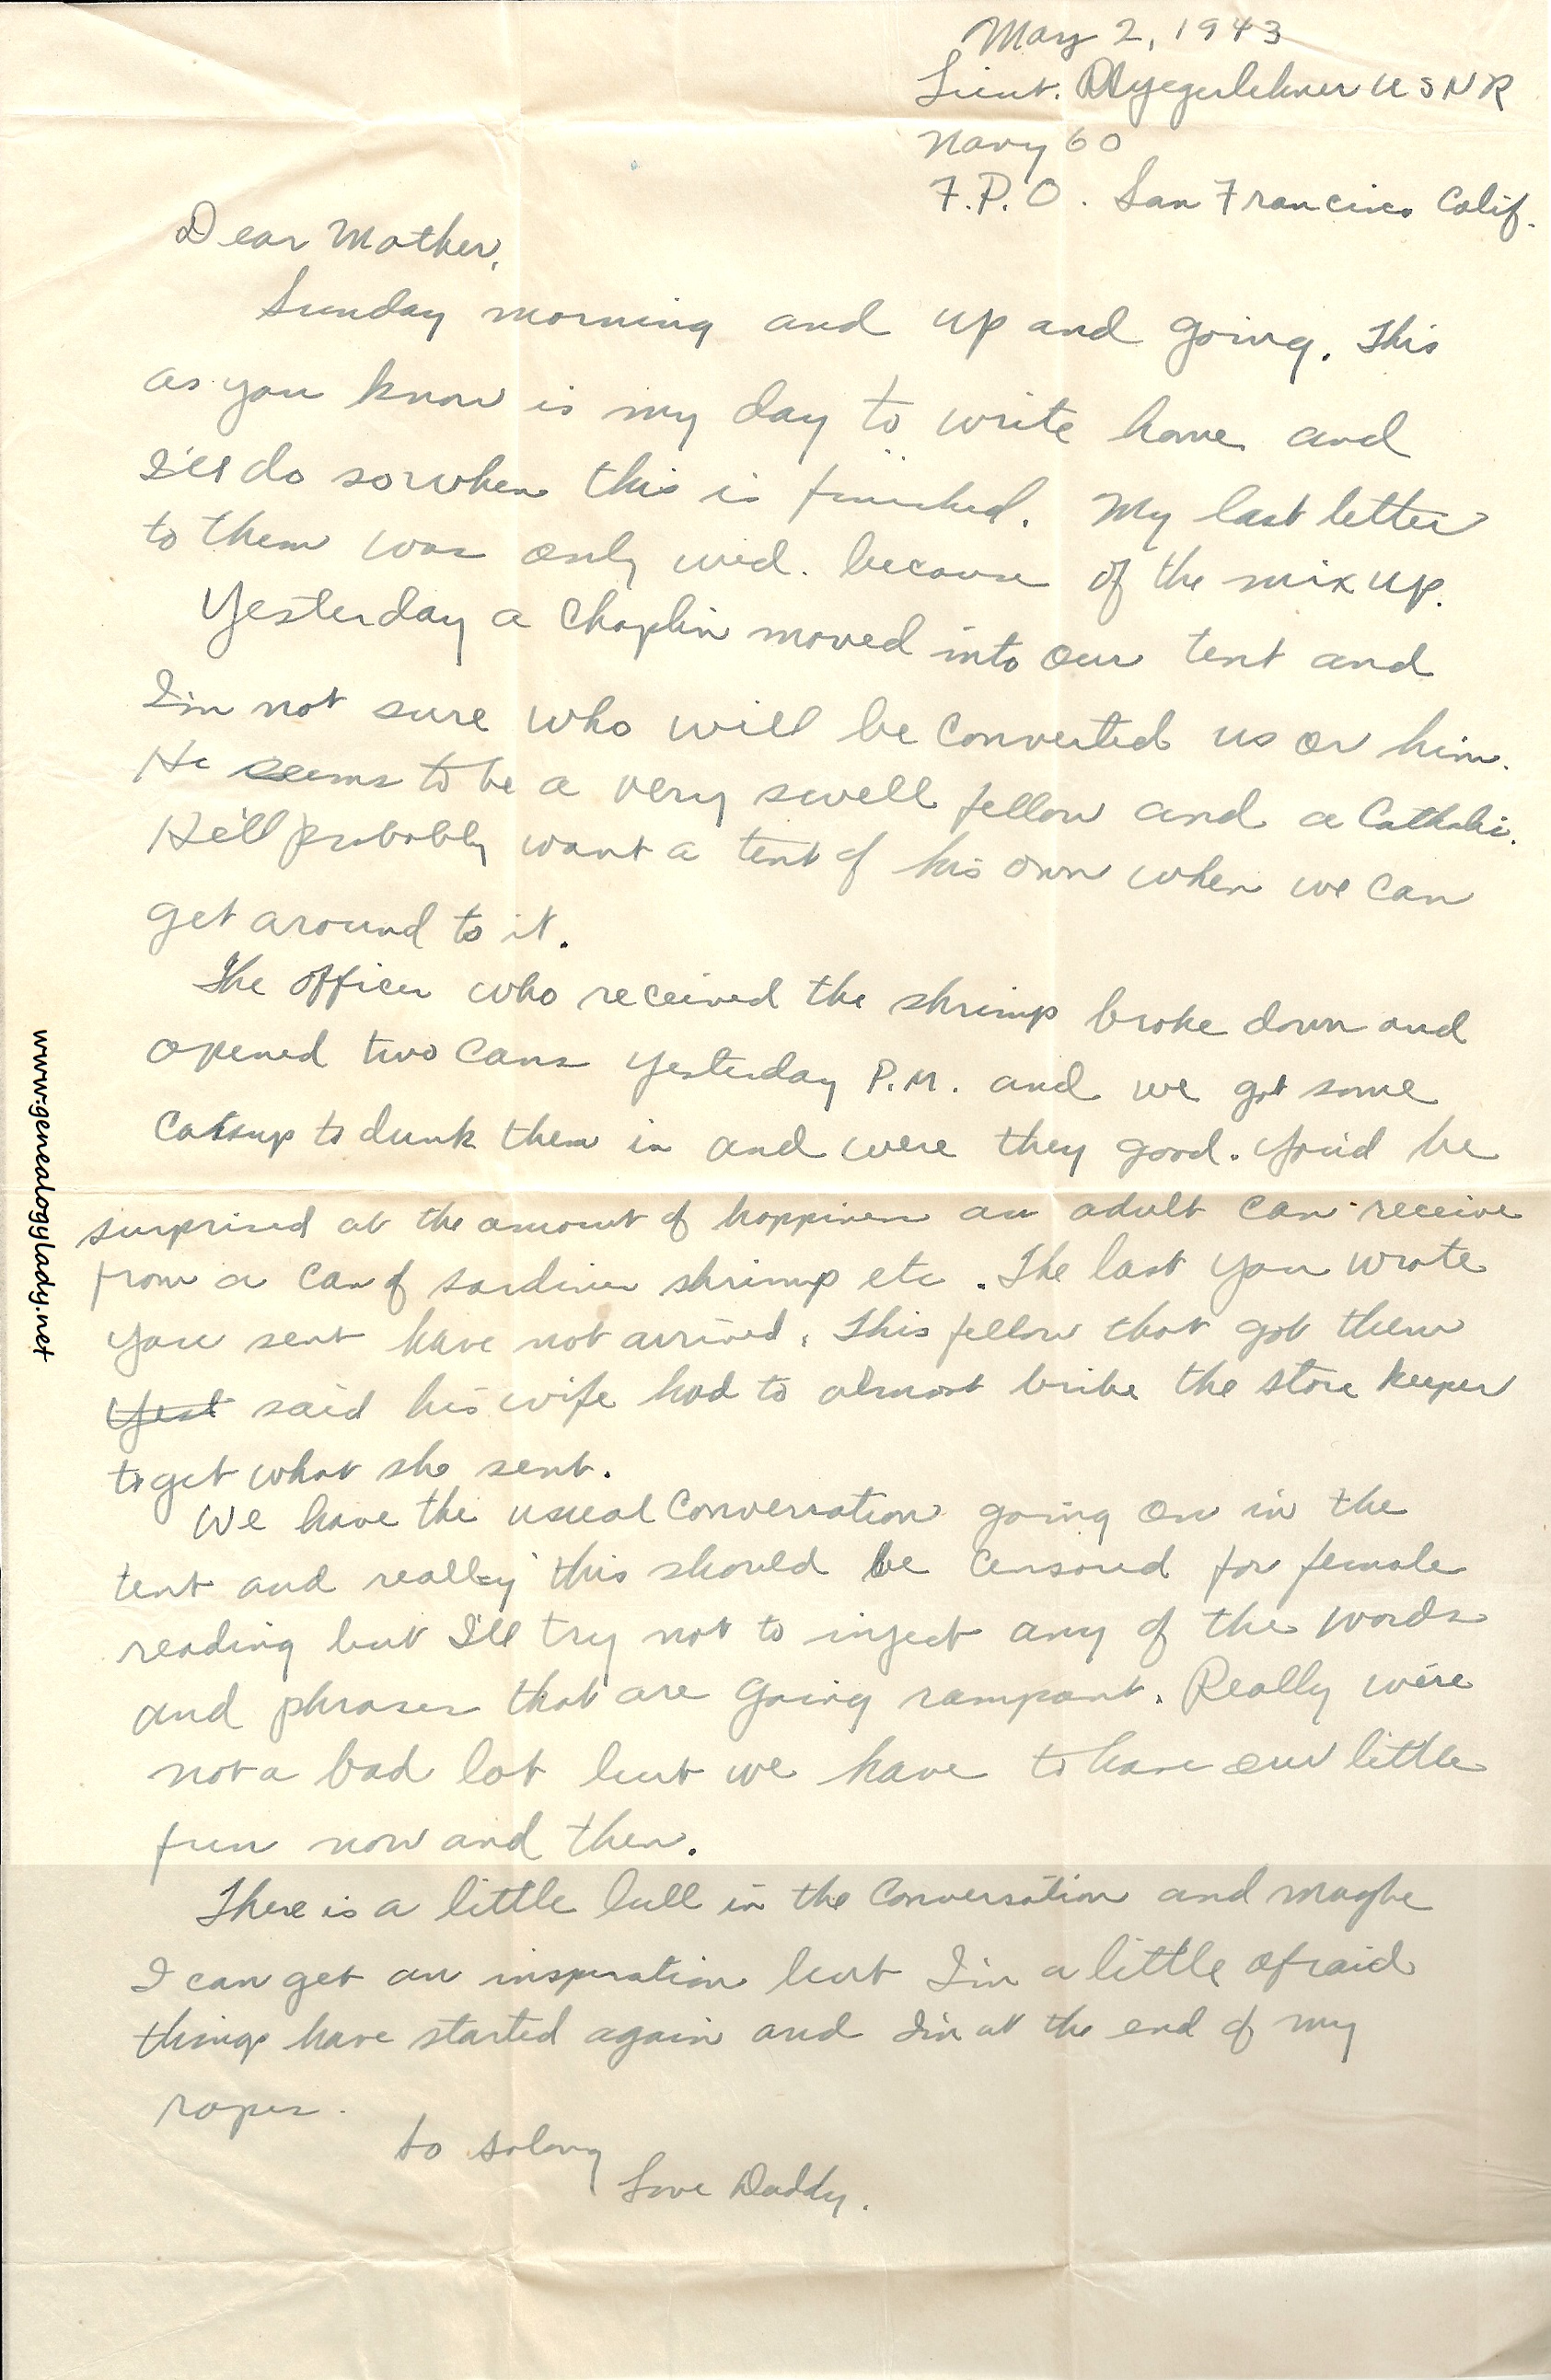 May 2, 1943
Lieut. RYegerlehner USNR
Navy 60
F.P.O. San Francisco Calif.
Dear Mother,
Sunday morning and up and going. This
as you know is my day to write home and
I'll do so when this is finished. My last letter
to them was only wed. because of the mix up.
Yesterday a Chaplin moved into our tent and
I'm not sure who will be converted us or him.
He seems to be a very swell fellow and a Catholic.
He'll probably want a tent of his own when we can
get around to it.
The officer who received the shrimp broke down and
opened two cans yesterday P.M. and we got some
catsup to dunk them in and were they good. You'd be
surprised at the amount of happiness an adult can receive
from a can of sardines shrimp etc. The last you wrote
you sent have not arrived. This fellow that got them
Yest said his wife had to almost bribe the store keeper
to get what she sent.
We have the usual conversation going on in the
tent and really this should be censored for female
reading but I'll try not to inject any of the words
and phrases that are going rampant. Really we're
not a bad lot but we have to have our little
fun now and then.
There is a little lull in the conversation and maybe
I can get an inspiration but I'm a little afraid
things have started again and I'm at the end of my
ropes.
So solong
Love Daddy.
www.genealogylady.net